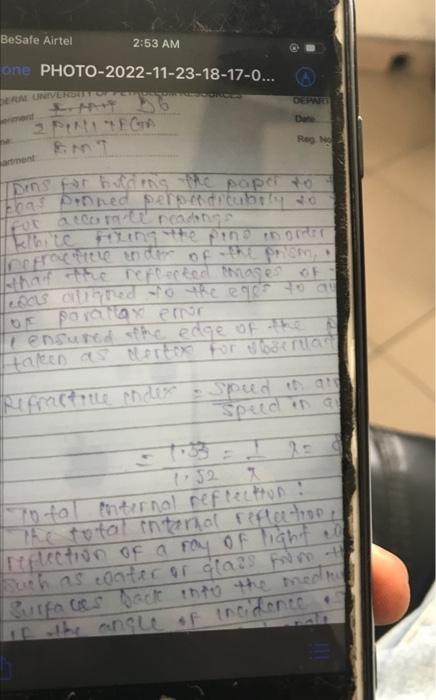 BeSafe Airtel
2:53 AM
one PHOTO-2022-11-23-18-17-0...
DERAL UNIVERSITY OF PETROLEUM RESOURCES
DEPART
eriment
D6
Date
Reg. No
artment
pins for holding the paper to
was pinned perpendicularly to
for accurate readings
While fixing the pins in order
refractive index of the prism,
that the reflected images of
was aligned to the eyes to a
of parallax error
I ensured the edge of the
taken as vertex for observat
Refractive index = Speed in air
Speed in g
= 1.33 = 1
1.52 x
Total internal reflection:
The total internal reflection
reflection of a ray of light
such as water or glass from th
surfaces back into the mediu
if the angle of incidence is